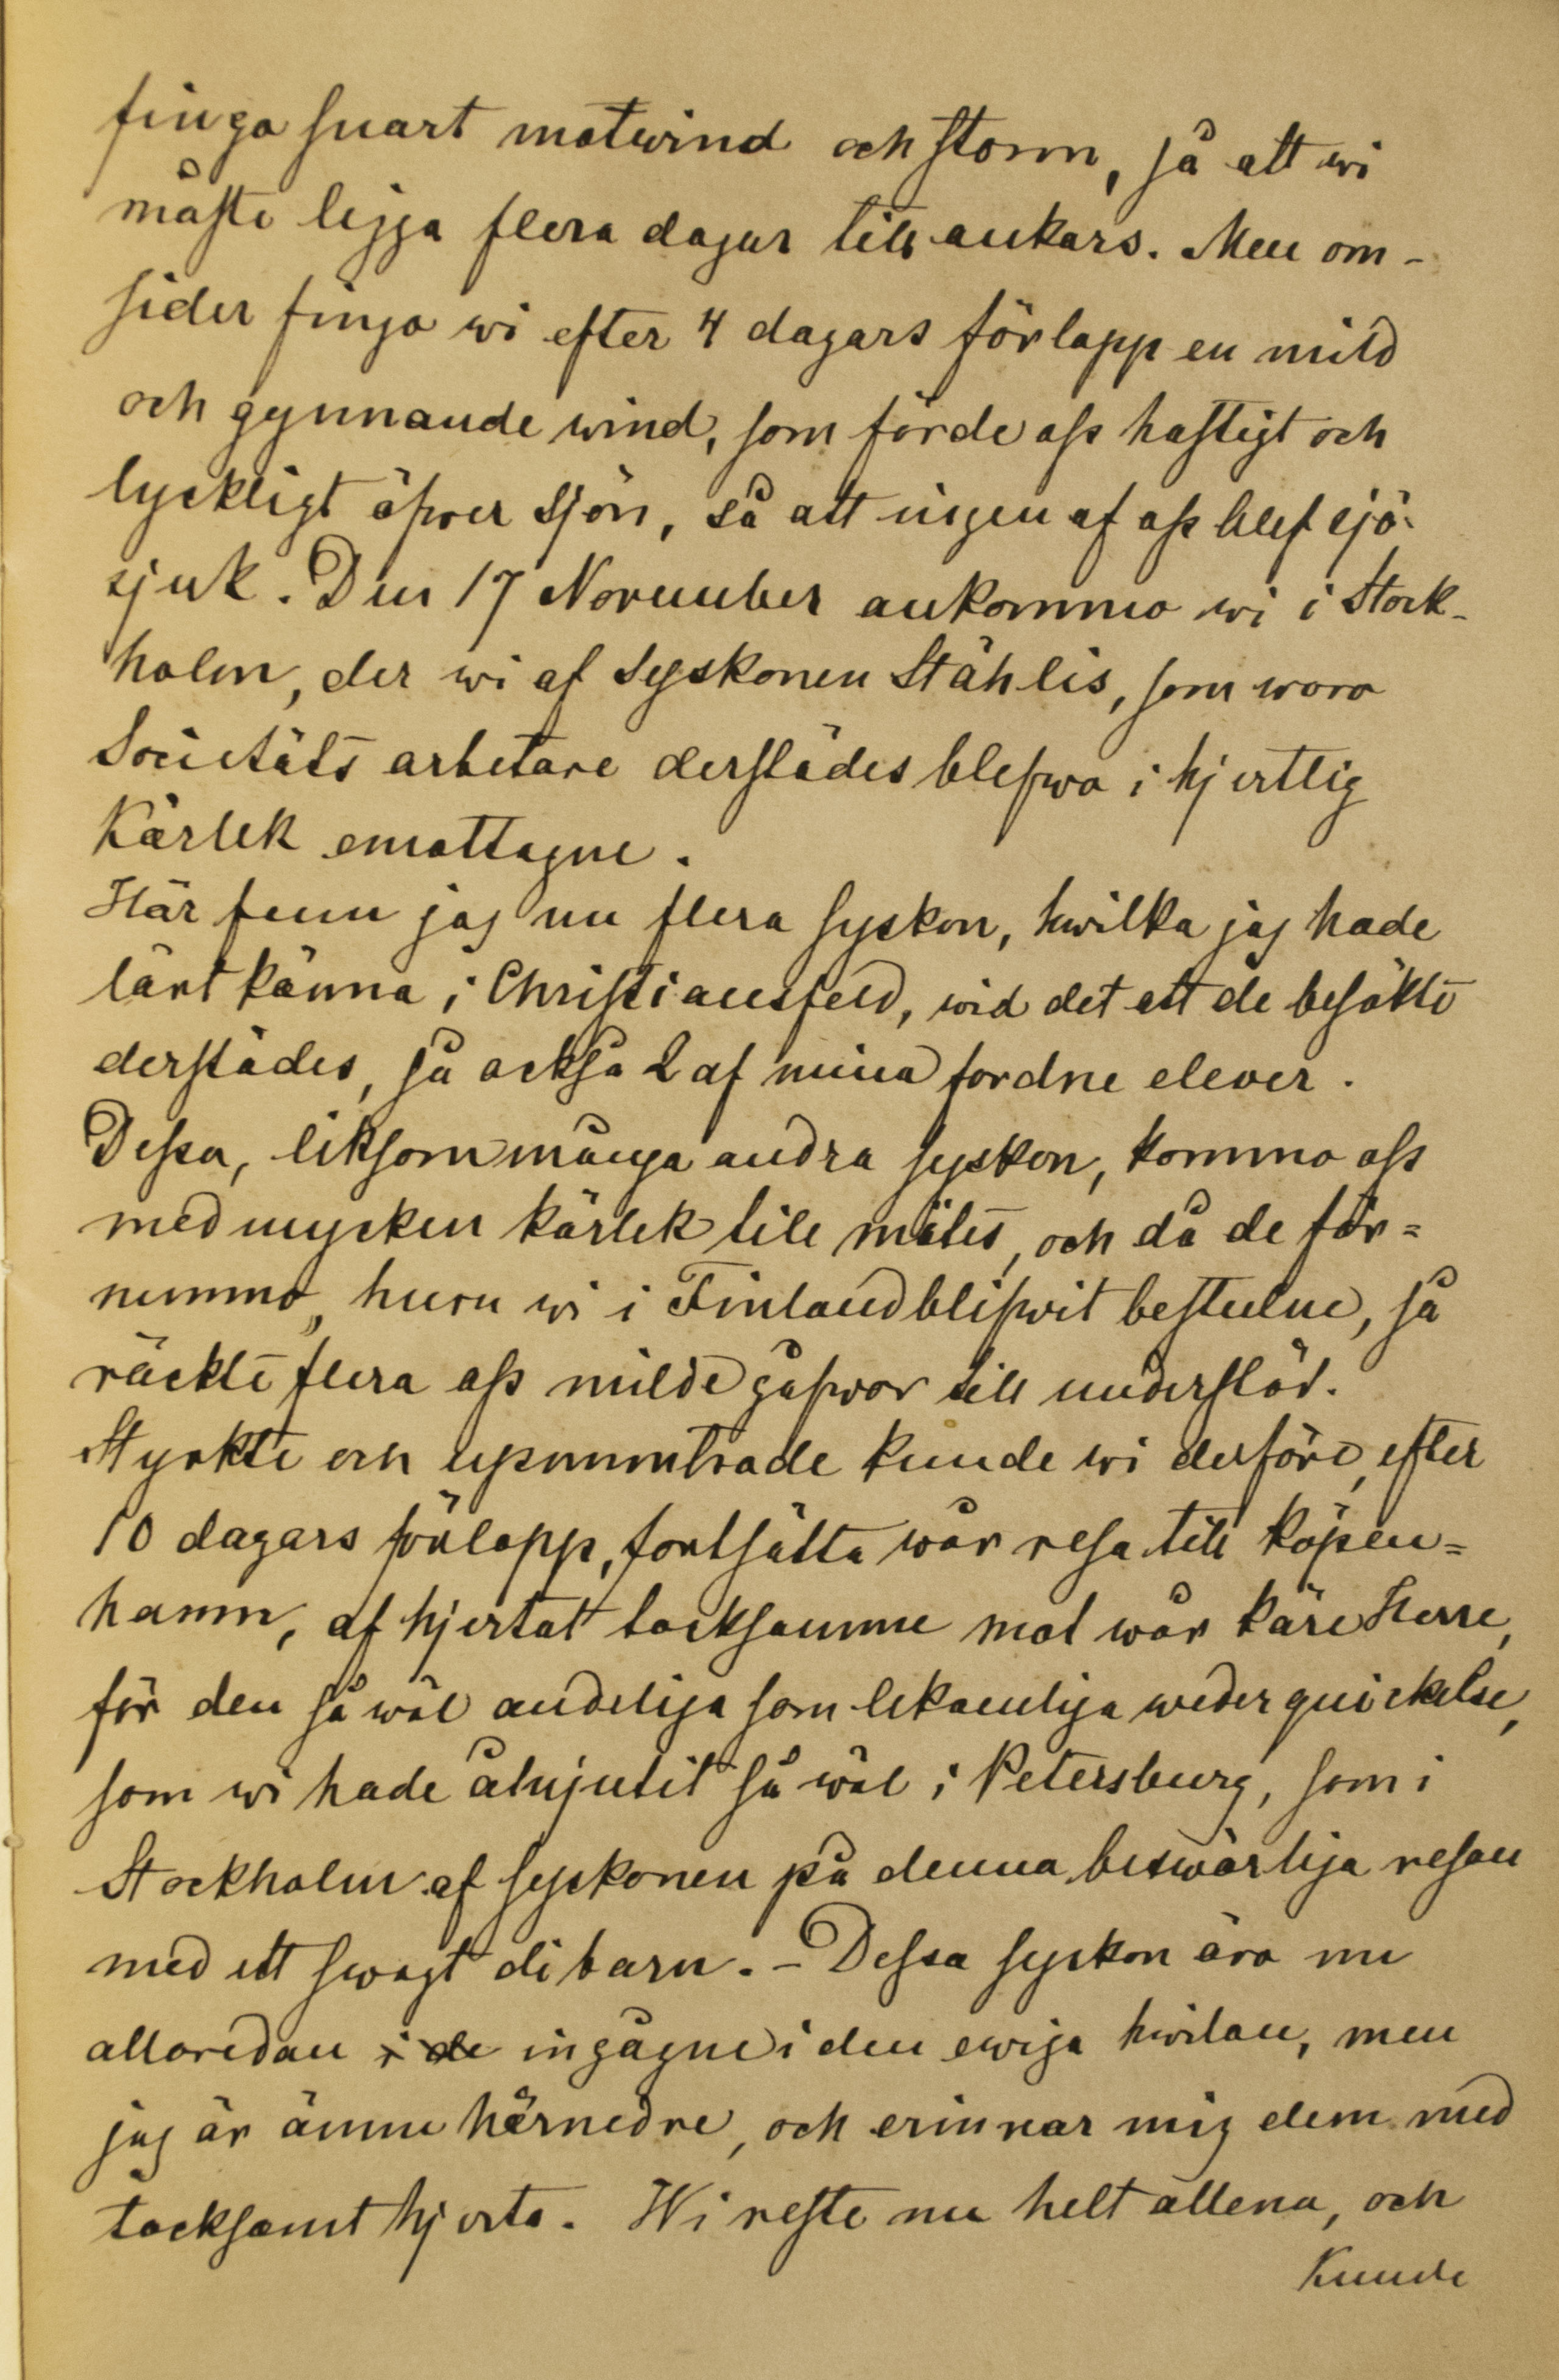 fingo snart motwind och storm, så att wi
måste ligga flera dagar till ankars. Men om-
sider fingo wi efter 4 dagars förlopp en mild
och gynnande wind, som förde oss hastigt och
lyckligt öfwer sjön, så att ingen af oss blef sjö-
sjuk. Den 17 November ankommo wi i Stock-
holm, der wi af Syskonen Stählis, som woro
Societäts arbetare derstädes blefwo i hjertlig
Kärlek emottagne.
Här fenn jag nu flera syskon, hwilka jag hade
lärt känna i Christiansfeld, wid det att de besökte
derstädes, så också 2 af mina fordne elever.
Dessa, liksom många andra syskon, kommo oss
med mycken kärlek till mötes, och då de för=
nummo, huru wi i Finland blifwit bestulne, så
räckte flera oss milde gåfwor till understöd.
Styrkte och upmuntrade kunde wi derföre, efter
10 dagars förlopp, fortsätta wår resa till Köpen=
hamn, af hjertat tacksamme mot wår käre Herre,
för den så wäl andeliga som lekamliga wederquickelse,
som wi hade åtnjutit så wäl i Petersburg, som i
Stockholm af syskonen på denna beswärliga resan
med ett swagt di barn. - Dessa syskon äro nu
allaredan i de ingågne i den ewiga hwilan, men
jag är ännu härnedre, och erinnar mig dem med
tacksamt hjerta. Wi reste nu helt allena, och
Kunde